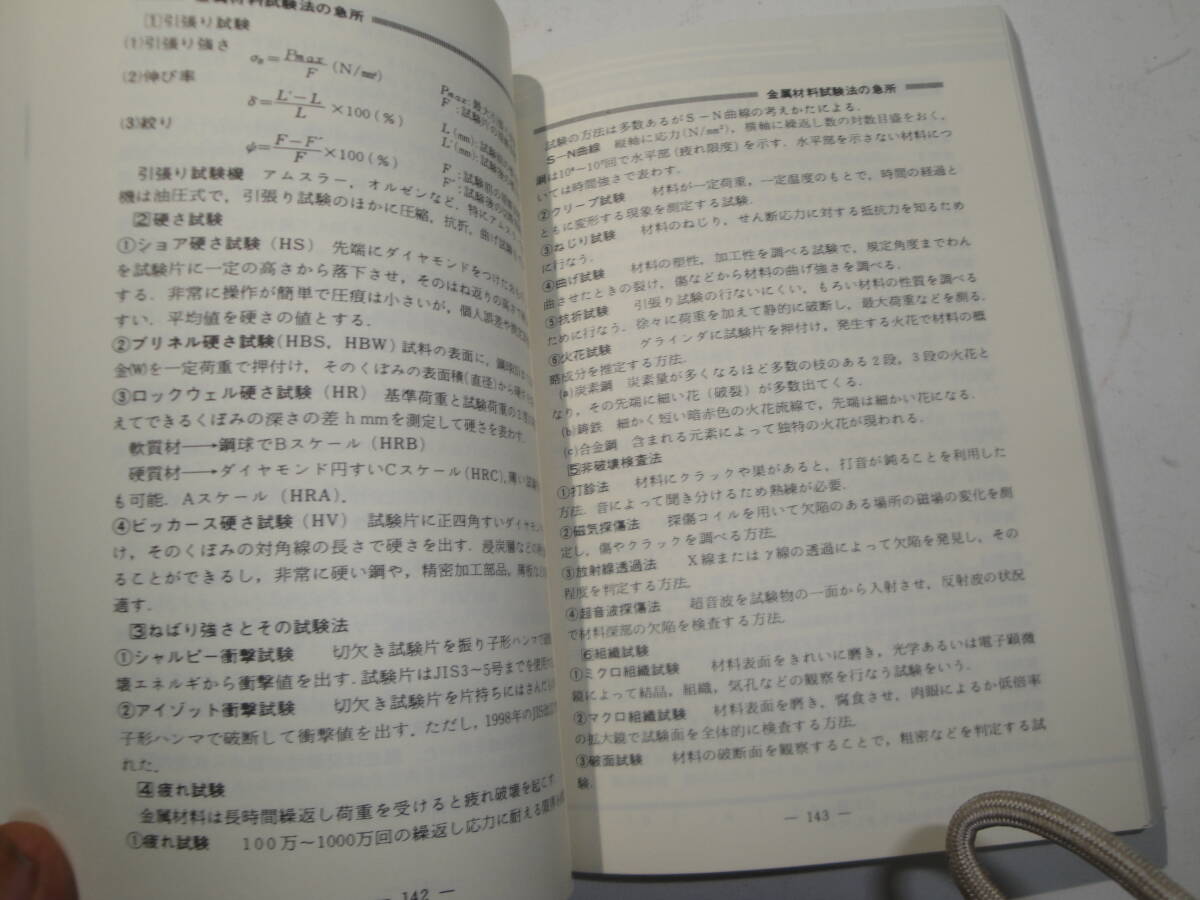 金属材料試験法の急所
1引張り試験
(1)引張り強さ
σB=Pmax/F (N/mm²)
Pmax:最大引張
F:試験片の
(2)伸び率
δ=L′−L/L×100(%)
L(mm):試験前の
L′(mm):試験後の
(3)絞り
ψ=F−F′/F×100(%)
F:試験前の
F′:試験後の
引張り試験機 アムスラー,オルゼンなど.特にアムスラ
機は油圧式で,引張り試験のほかに圧縮,抗折,曲げ試験
2硬さ試験
①ショア硬さ試験(HS) 先端にダイヤモンドをつけた
を試験片に一定の高さから落下させ,そのはね返りの高さで
する.非常に操作が簡単で圧痕は小さいが,個人誤差や
すい.平均値を硬さの値とする.
②ブリネル硬さ試験(HBS,HBW)試料の表面に,鋼球
金(W)を一定荷重で押付け,そのくぼみの表面積(直径)から硬さ
③ロックウェル硬さ試験(HR) 基準荷重と試験荷重の
えてできるくぼみの深さの差hmmを測定して硬さを表わす.
軟質材→鋼球でBスケール(HRB)
硬質材→ダイヤモンド円すいCスケール(HRC),薄い
も可能.Aスケール(HRA).
④ビッカース硬さ試験(HV) 試験片に正四角すいダイヤモン
け,そのくぼみの対角線の長さで硬さを出す.浸炭層などの
ることができるし,非常に硬い鋼や,精密加工部品,薄板などに
適す.
3ねばり強さとその試験法
①シャルピー衝撃試験 切欠き試験片を振り子形ハンマで
壊エネルギから衝撃値を出す.試験片はJIS3~5号までを使用
②アイゾット衝撃試験 切欠き試験片を片持ちにはさんだ
子形ハンマで破断して衝撃値を出す.ただし,1998年のJIS
れた.
4疲れ試験
金属材料は長時間繰返し荷重を受けると疲れ破壊を起こす.
①疲れ試験 100万~1000万回の繰返し応力に耐える
— 142 —
金属材料試験法の急所
試験の方法は多数あるがS−N曲線の考えかたによる.
S−N曲線 縦軸に応力(N/mm²),横軸に繰返し数の対数目盛をおく,
鋼は10⁶~10⁷回で水平部(疲れ限度)を示す.水平部を示さない材料につ
いては時間強さで表わす.
②クリープ試験 材料が一定荷重,一定温度のもとで,時間の経過と
ともに変形する現象を測定する試験.
③ねじり試験 材料のねじり,せん断応力に対する抵抗力を知るため
に行なう.
④曲げ試験 材料の塑性,加工性を調べる試験で,規定角度までわん
曲させたときの裂け,傷などから材料の曲げ強さを調べる.
⑤抗折試験 引張り試験の行ないにくい,もろい材料の性質を調べる
ために行なう.徐々に荷重を加えて静的に破断し,最大荷重などを測る.
⑥火花試験 グラインダに試験片を押付け,発生する火花で材料の概
略成分を推定する方法.
(a)炭素鋼 炭素量が多くなるほど多数の枝のある2段,3段の火花と
なり,その先端に細い花(破裂)が多数出てくる.
(b)鋳鉄 細かく短い暗赤色の火花流線で,先端は細かい花になる.
(c)合金鋼 含まれる元素によって独特の火花が現われる.
5非破壊検査法
①打診法 材料にクラックや巣があると,打音が鈍ることを利用した
方法.音によって聞き分けるため熟練が必要.
②磁気探傷法 探傷コイルを用いて欠陥のある場所の磁場の変化を測
定し,傷やクラックを調べる方法.
③放射線透過法 X線またはγ線の透過によって欠陥を発見し,その
程度を判定する方法.
④超音波探傷法 超音波を試験物の一面から入射させ,反射波の状況
で材料深部の欠陥を検査する方法.
6組織試験
①ミクロ組織試験 材料表面をきれいに磨き,光学あるいは電子顕微
鏡によって結晶,組織,気孔などの観察を行なう試験をいう.
②マクロ組織試験 材料表面を磨き,腐食させ,肉眼によるか低倍率
の拡大鏡で試験面を全体的に検査する方法.
③破面試験 材料の破断面を観察することで,粗密などを判定する試
験.
— 143 —